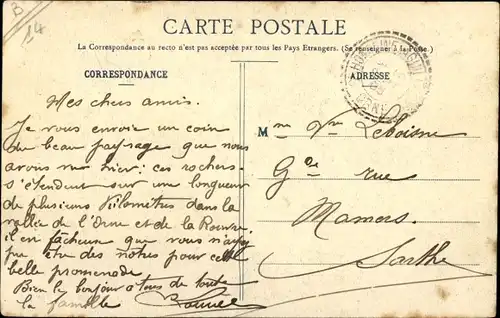 CARTE POSTALE
La Correspondance au recto n'est pas acceptée par tous les Pays Etrangers. (Se renseigner à la Poste.)
CORRESPONDANCE
ADRESSE
Mes chers amis.
Je vous envoie un coin
du beau paysage que nous
avons vu hier; ces rochers
s'étendent sur une longueur
de plusieurs kilomètres dans la
vallée de l'Orne et de la Rouvre
il est fâcheux que vous n'ayez
pas été des nôtres pour cette
belle promenade
Bien le bonjour à tous de toute
la famille
M me Vve Leboisne
Gde rue
Mamers
Sarthe